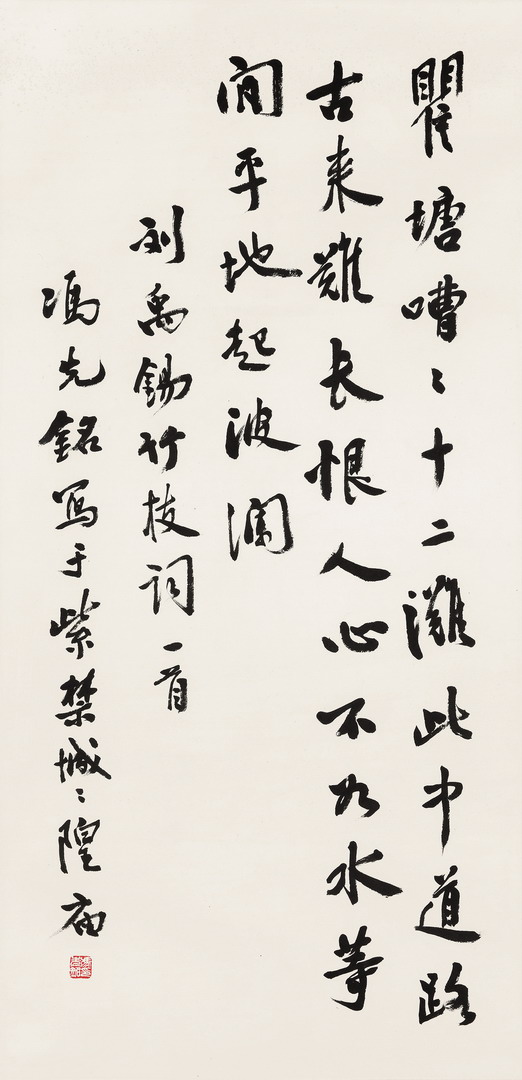 瞿塘嘈〻十二滩此中道路
古来难长恨人心不如水等
闲平地起波澜
刘禹锡竹枝词一首
冯先铭写于紫禁城〻隍庙